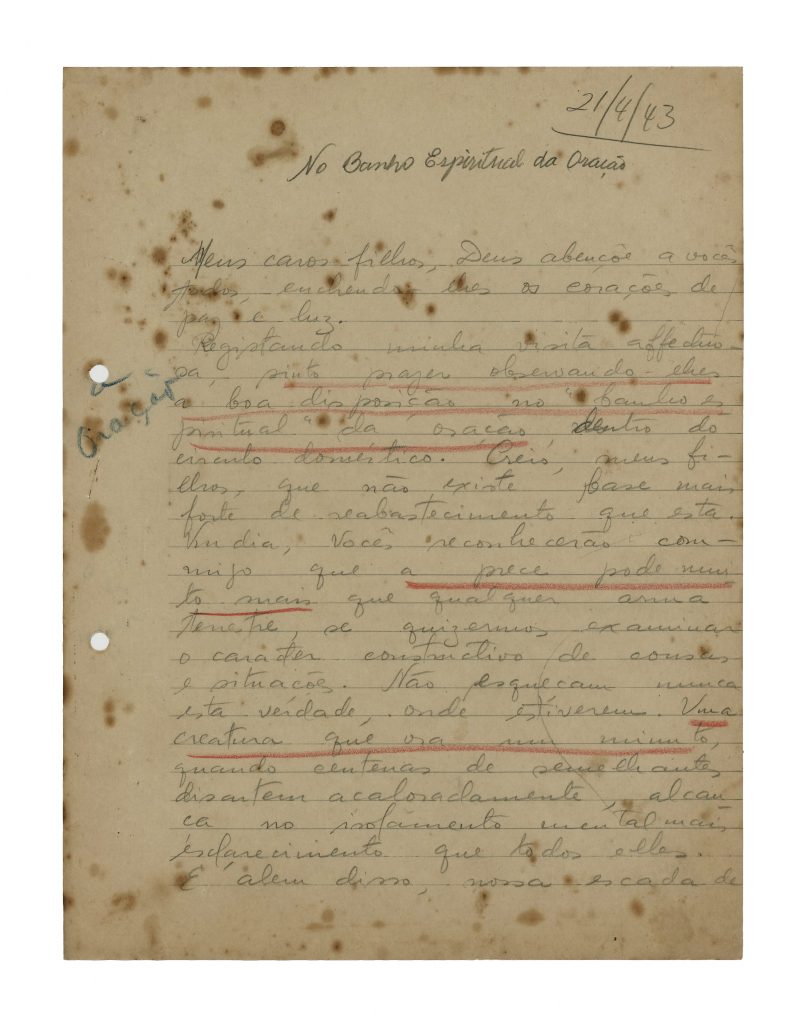 21/4/43
No Banho Espiritual da Oração
Meus caros filhos, Deus abençôe a vocês
todos, enchendo-lhes os corações de
paz e luz.
Registando minha visita affectuo-
sa, sinto prazer observando-lhes
a boa disposição no "banho es
piritual" da oração dentro do
circulo doméstico. Creio, meus fi-
lhos, que não existe base mais
forte de reabastecimento que esta.
Um dia, Vocês reconhecerão com-
migo que a prece pode mui
to mais que qualquer arma
terrestre, se quizermos examinar
o caracter constructivo de cousas
e situações. Não esqueçam nunca
esta verdade, onde estiverem. Uma
creatura que ora um minuto,
quando centenas de semelhantes
discutem acaloradamente, alcan
ça no isolamento mental mais
esclarecimento que todos elles.
E' alem disso, nossa escada de
a
Oração